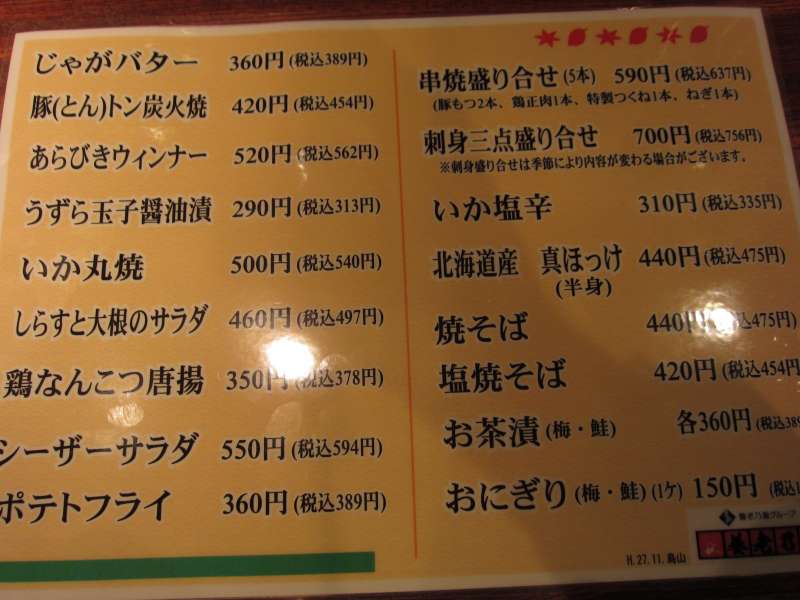 じゃがバター 360円(税込389円)
豚(とん)トン炭火焼 420円(税込454円)
あらびきウィンナー 520円(税込562円)
うずら玉子醤油漬 290円(税込313円)
いか丸焼 500円(税込540円)
しらすと大根のサラダ 460円(税込497円)
鶏なんこつ唐揚 350円(税込378円)
シーザーサラダ 550円(税込594円)
ポテトフライ 360円(税込389円)
串焼盛り合せ(5本) 590円(税込637円)
(豚もつ2本、鶏正肉1本、特製つくね1本、ねぎ1本)
刺身三点盛り合せ 700円(税込756円)
※刺身盛り合せは季節により内容が変わる場合がございます。
いか塩辛 310円(税込335円)
北海道産 真ほっけ 440円(税込475円)
(半身)
焼そば 440円(税込475円)
塩焼そば 420円(税込454円
お茶漬(梅・鮭) 各360円(税込389
おにぎり(梅・鮭)(1ケ) 150円(税込1
養老乃瀧グループ
養老乃
H.27.11.烏山